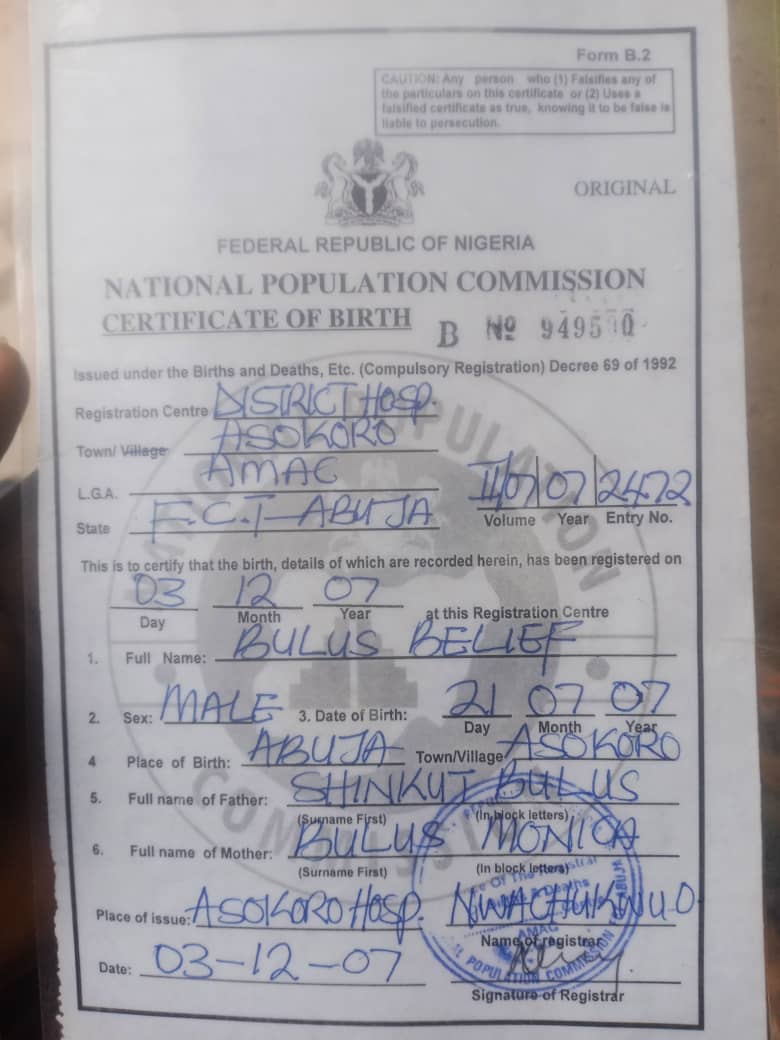 Form B.2
CAUTION: Any person who (1) Falsifies any of
the particulars on this certificate or (2) Uses a
falsified certificate as true, knowing it to be false is
liable to persecution.
ORIGINAL
FEDERAL REPUBLIC OF NIGERIA
NATIONAL POPULATION COMMISSION
CERTIFICATE OF BIRTH B No
Issued under the Births and Deaths, Etc. (Compulsory Registration) Decree 69 of 1992
Registration Centre DISTRICT HOSP.
Town/ Village ASOKORO
L.G.A. AMAC
State F.C.T-ABUJA
II/07 07 2472
Volume Year Entry No.
This is to certify that the birth, details of which are recorded herein, has been registered on
03 12 07 at this Registration Centre
Day Month Year
1. Full Name: BULUS BELIEF
2. Sex: MALE 3. Date of Birth: 21 07 07
Day Month Year
4 Place of Birth: ABUJA Town/Village ASOKORO
5. Full name of Father: SHINKUT BULUS
(Surname First) (In block letters)
6. Full name of Mother: BULUS MONICA
(Surname First) (In block letters)
Place of issue: ASOKORO HOSP. NWACHUKWU O
Name of registrar
Date: 03-12-07
Signature of Registrar